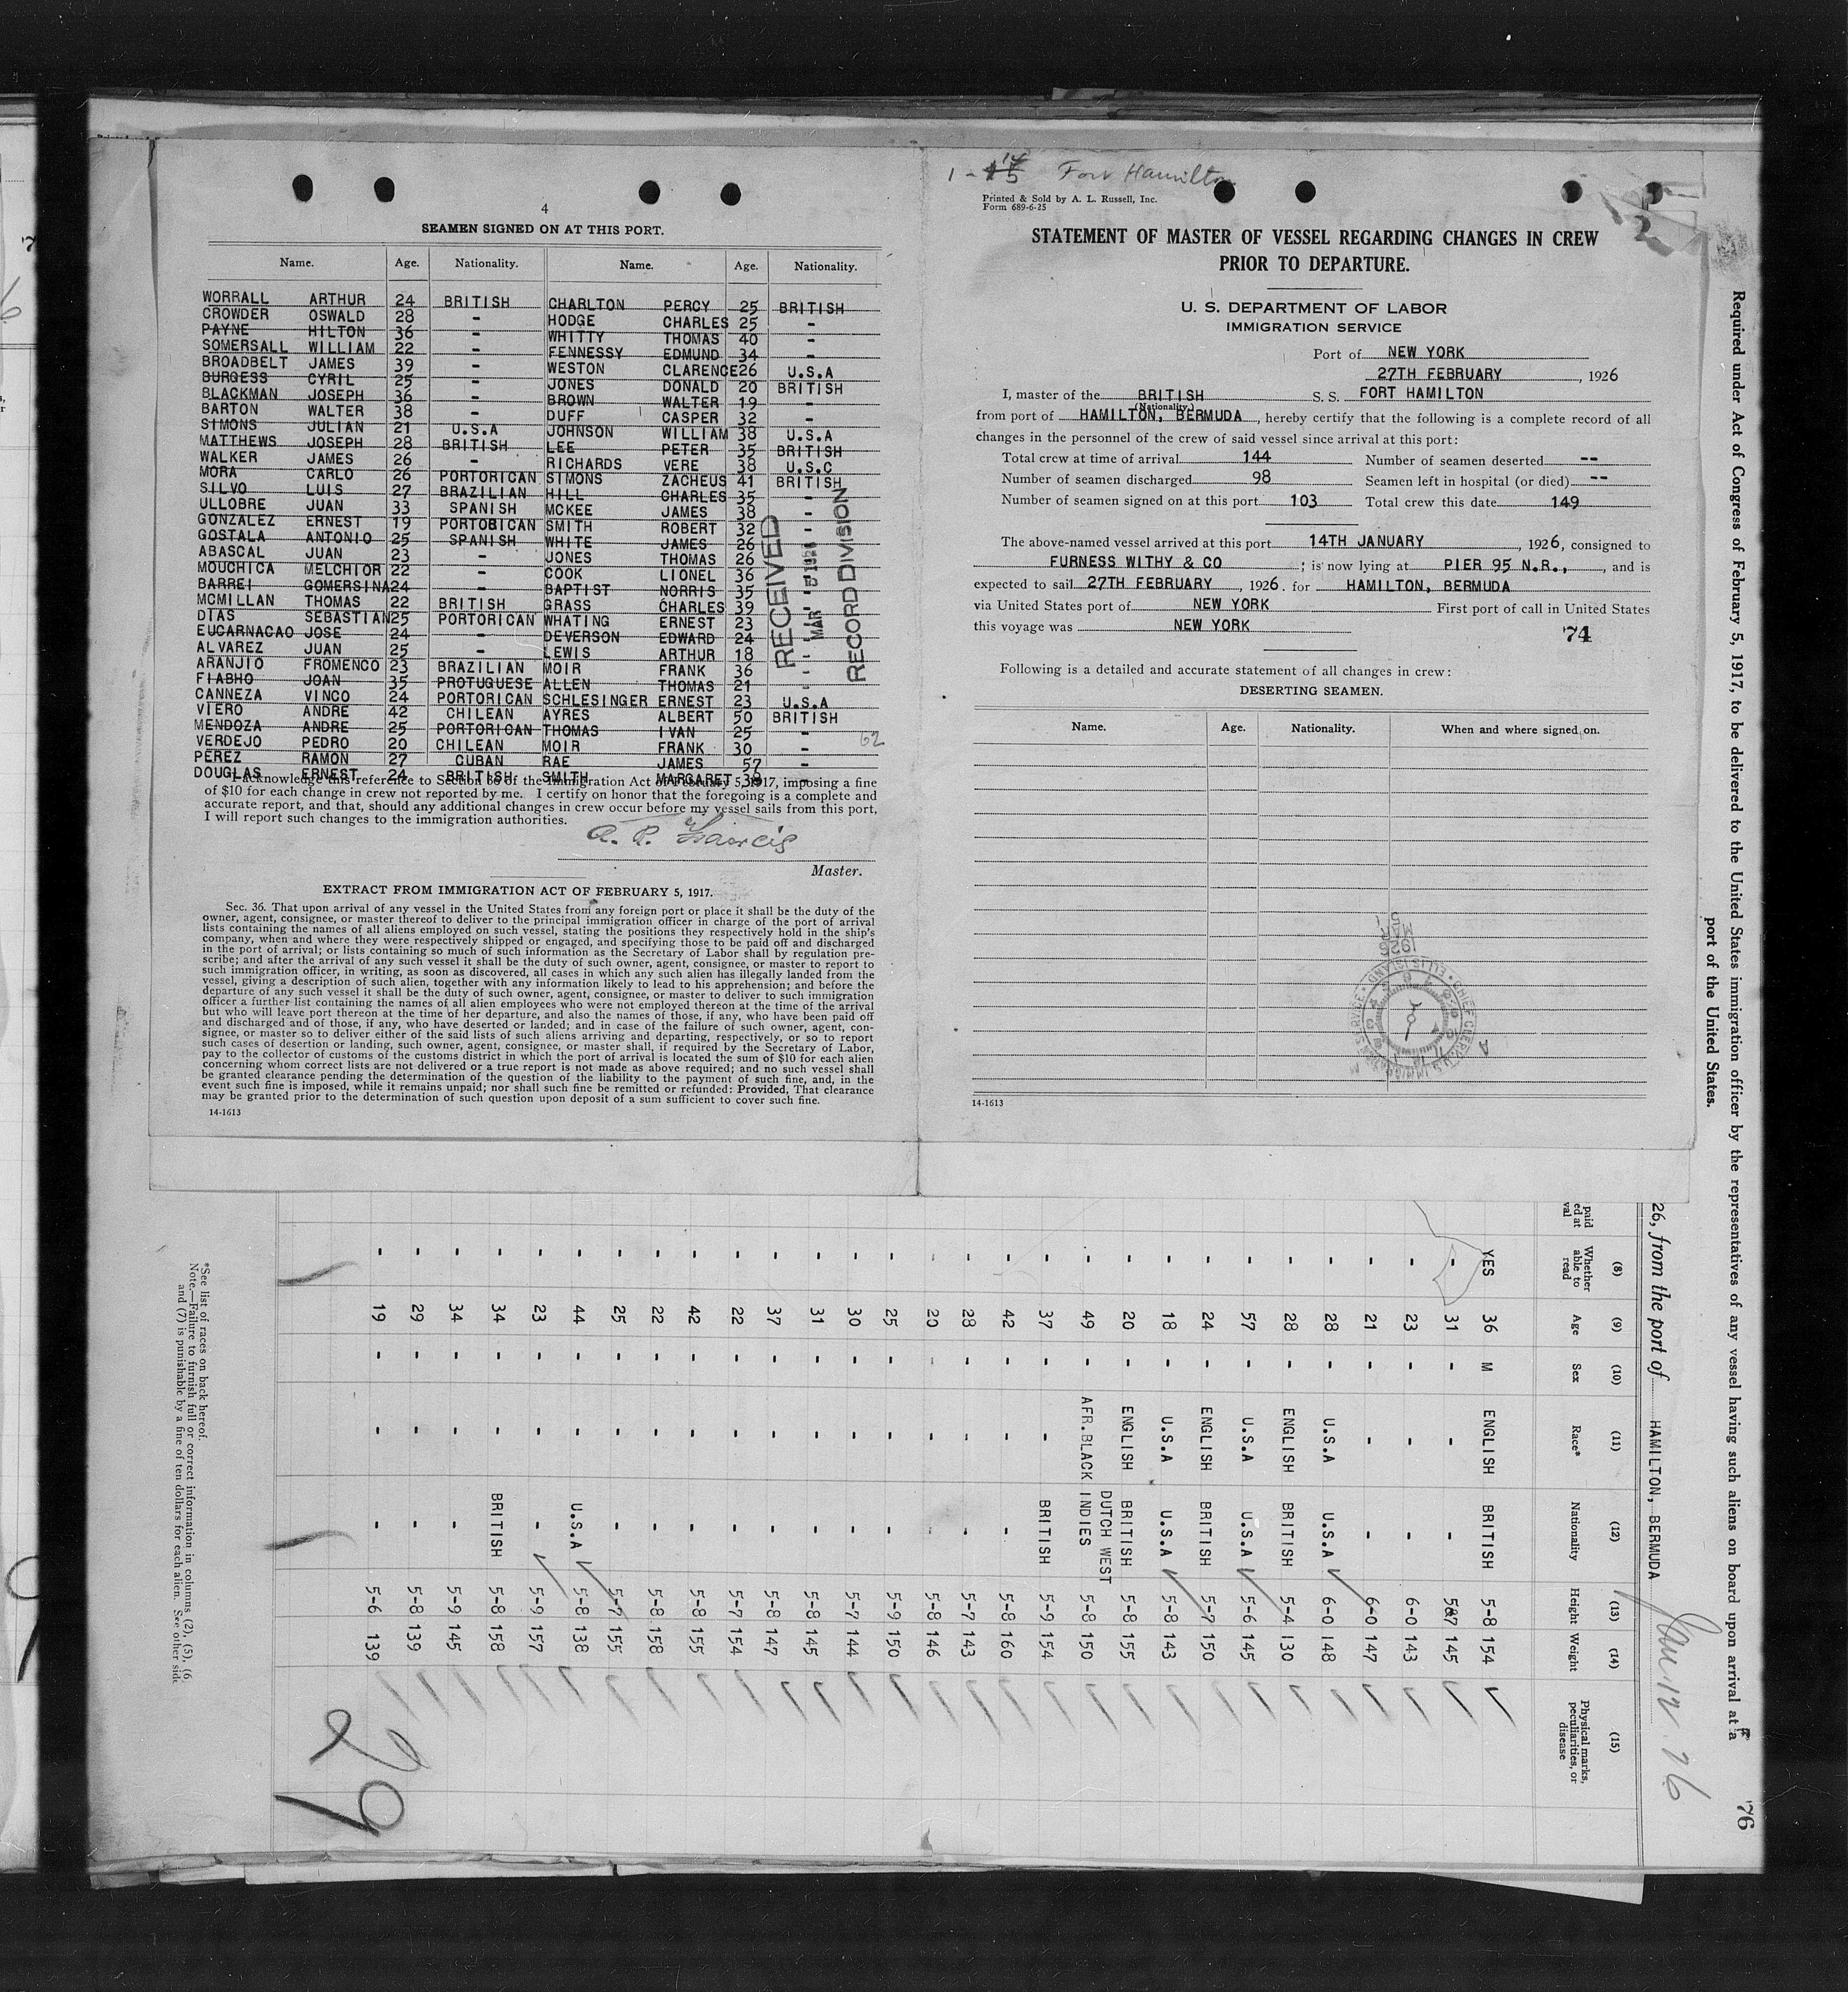 4
SEAMEN SIGNED ON AT THIS PORT.
Name. Age. Nationality. Name. Age. Nationality.
WORRALL ARTHUR 24 BRITISH CHARLTON PERCY 25 BRITISH
CROWDER OSWALD 28 - HODGE CHARLES 25 -
PAYNE HILTON 36 - WHITTY THOMAS 40 -
SOMERSALL WILLIAM 22 - FENNESSY EDMUND 34 -
BROADBELT JAMES 39 - WESTON CLARENCE 26 U.S.A
BURGESS CYRIL 25 - JONES DONALD 20 BRITISH
BLACKMAN JOSEPH 36 - BROWN WALTER 19 -
BARTON WALTER 38 - DUFF CASPER 32 -
SIMONS JULIAN 21 U.S.A JOHNSON WILLIAM 38 U.S.A
MATTHEWS JOSEPH 28 BRITISH LEE PETER 35 BRITISH
WALKER JAMES 26 - RICHARDS VERE 38 U.S.C
MORA CARLO 26 PORTORICAN SIMONS ZACHEUS 41 BRITISH
SILVO LUIS 27 BRAZILIAN HILL CHARLES 35 -
ULLOBRE JUAN 33 SPANISH MCKEE JAMES 38 -
GONZALEZ ERNEST 19 PORTORICAN SMITH ROBERT 32 -
GOSTALA ANTONIO 25 SPANISH WHITE JAMES 26 -
ABASCAL JUAN 23 - JONES THOMAS 26 -
MOUCHICA MELCHIOR 22 - COOK LIONEL 36 -
BARREI GOMERSINA 24 - BAPTIST NORRIS 35 -
MCMILLAN THOMAS 22 BRITISH GRASS CHARLES 39 -
DIAS SEBASTIAN 25 PORTORICAN WHATING ERNEST 23 -
EUCARNACAO JOSE 24 - DEVERSON EDWARD 24 -
ALVAREZ JUAN 25 - LEWIS ARTHUR 18 -
ARANJIO FROMENCO 23 BRAZILIAN MOIR FRANK 36 -
FIABHO JOAN 35 PROTUGUESE ALLEN THOMAS 21 -
CANNEZA VINCO 24 PORTORICAN SCHLESINGER ERNEST 23 U.S.A
VIERO ANDRE 42 CHILEAN AYRES ALBERT 50 BRITISH
MENDOZA ANDRE 25 PORTORICAN THOMAS IVAN 25 -
VERDEJO PEDRO 20 CHILEAN MOIR FRANK 30 -
PEREZ RAMON 27 CUBAN RAE JAMES 57 -
DOUGLAS ERNEST 24 BRITISH SMITH MARGARET 38 -
62
RECEIVED
MAR 1926
RECORD DIVISION
I acknowledge this reference to Section 36 of the Immigration Act of February 5, 1917, imposing a fine
of $10 for each change in crew not reported by me. I certify on honor that the foregoing is a complete and
accurate report, and that, should any additional changes in crew occur before my vessel sails from this port,
I will report such changes to the immigration authorities.
A. R. Francis
Master.
EXTRACT FROM IMMIGRATION ACT OF FEBRUARY 5, 1917.
Sec. 36. That upon arrival of any vessel in the United States from any foreign port or place it shall be the duty of the
owner, agent, consignee, or master thereof to deliver to the principal immigration officer in charge of the port of arrival
lists containing the names of all aliens employed on such vessel, stating the positions they respectively hold in the ship's
company, when and where they were respectively shipped or engaged, and specifying those to be paid off and discharged
in the port of arrival; or lists containing so much of such information as the Secretary of Labor shall by regulation pre-
scribe; and after the arrival of any such vessel it shall be the duty of such owner, agent, consignee, or master to report to
such immigration officer, in writing, as soon as discovered, all cases in which any such alien has illegally landed from the
vessel, giving a description of such alien, together with any information likely to lead to his apprehension; and before the
departure of any such vessel it shall be the duty of such owner, agent, consignee, or master to deliver to such immigration
officer a further list containing the names of all alien employees who were not employed thereon at the time of the arrival
but who will leave port thereon at the time of her departure, and also the names of those, if any, who have been paid off
and discharged and of those, if any, who have deserted or landed; and in case of the failure of such owner, agent, con-
signee, or master so to deliver either of the said lists of such aliens arriving and departing, respectively, or so to report
such cases of desertion or landing, such owner, agent, consignee, or master shall, if required by the Secretary of Labor,
pay to the collector of customs of the customs district in which the port of arrival is located the sum of $10 for each alien
concerning whom correct lists are not delivered or a true report is not made as above required; and no such vessel shall
be granted clearance pending the determination of the question of the liability to the payment of such fine, and, in the
event such fine is imposed, while it remains unpaid; nor shall such fine be remitted or refunded: Provided, That clearance
may be granted prior to the determination of such question upon deposit of a sum sufficient to cover such fine.
14-1613
1 - 14 15 Fort Hamilton
Printed & Sold by A. L. Russell, Inc.
Form 689-6-25
2
STATEMENT OF MASTER OF VESSEL REGARDING CHANGES IN CREW
PRIOR TO DEPARTURE.
U. S. DEPARTMENT OF LABOR
IMMIGRATION SERVICE
Port of NEW YORK
27TH FEBRUARY, 1926
I, master of the BRITISH S. S. FORT HAMILTON
(Nationality.)
from port of HAMILTON, BERMUDA, hereby certify that the following is a complete record of all
changes in the personnel of the crew of said vessel since arrival at this port:
Total crew at time of arrival 144 Number of seamen deserted --
Number of seamen discharged 98 Seamen left in hospital (or died) --
Number of seamen signed on at this port 103 Total crew this date 149
The above-named vessel arrived at this port 14TH JANUARY, 1926, consigned to
FURNESS WITHY & CO; is now lying at PIER 95 N.R., , and is
expected to sail 27TH FEBRUARY, 1926. for HAMILTON, BERMUDA
via United States port of NEW YORK First port of call in United States
this voyage was NEW YORK
74
Following is a detailed and accurate statement of all changes in crew:
DESERTING SEAMEN.
Name. Age. Nationality. When and where signed on.
1926
MAR
5
CHIEF CLERK
ELLIS ISLAND
14-1613
Required under Act of Congress of February 5, 1917, to be delivered to the United States immigration officer by the representatives of any vessel having such aliens on board upon arrival at a
port of the United States.
76
26, from the port of HAMILTON, BERMUDA
Jan 12 26
paid
ed at
val
(8) (9) (10) (11) (12) (13) (14) (15)
Whether able to read Age Sex Race* Nationality Height Weight Physical marks, peculiarities, or disease
YES 36 M ENGLISH BRITISH 5-8 154
- 31 - - - 587 145
- 23 - - - 6-0 143
- 21 - - - 6-0 147
- 28 - U.S.A U.S.A 6-0 148
- 28 - ENGLISH BRITISH 5-4 130
- 57 - U.S.A U.S.A 5-6 145
- 24 - ENGLISH BRITISH 5-7 150
- 18 - U.S.A U.S.A 5-8 143
- 20 - ENGLISH BRITISH 5-8 155
- 49 - AFR.BLACK DUTCH WEST INDIES 5-8 150
- 37 - - BRITISH 5-9 154
- 42 - - - 5-8 160
- 28 - - - 5-7 143
- 20 - - - 5-8 146
- 25 - - - 5-9 150
- 30 - - - 5-7 144
- 31 - - - 5-8 145
- 37 - - - 5-8 147
- 22 - - - 5-7 154
- 42 - - - 5-8 155
- 22 - - - 5-8 158
- 25 - - - 5-7 155
- 44 - - U.S.A 5-8 138
- 23 - - - 5-9 157
- 34 - - BRITISH 5-8 158
- 34 - - - 5-9 145
- 29 - - - 5-8 139
- 19 - - - 5-6 139
*See list of races on back hereof.
Note.—Failure to furnish full or correct information in columns (2), (5), (6,
and (7) is punishable by a fine of ten dollars for each alien. See other side